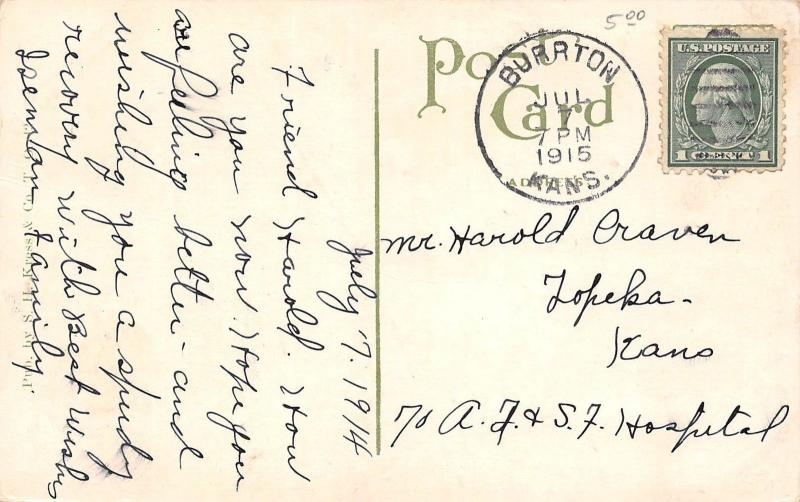 5 00
Post
Card
ADDRESS
BURRTON
JUL
7
7 PM
1915
KANS.
U.S. POSTAGE
1 CENT 1
Mr. Harold Craven
Topeka-
Kans
℅ A. T. & S. F. Hospital
July 7. 1914
Friend Harold. How
are you now. Hope you
are feeling better- and
wishing you a spudy
recovery with Best Wishes
Isenman Family.